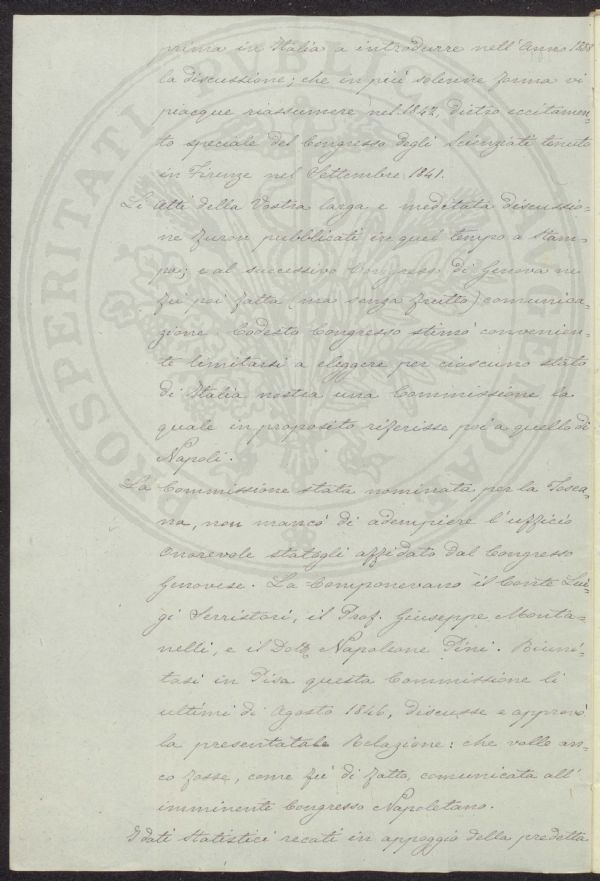 prima in Italia a introdurre nell'Anno 1838
la discussione; che in più solenne forma vi
piacque riassumere nel 1842, dietro eccitamen-
to speciale del Congresso degli Scienziati tenuto
in Firenze nel Settembre 1841.
Li Atti della Vostra larga e meditata discussio-
ne furon pubblicati in quel tempo a stam-
pa; e al successivo Congresso di Genova ne
fu poi fatta (ma senza frutto) comunica-
zione. Codesto Congresso stimò convenien-
te limitarsi a eleggere per ciascuno stato
di Italia nostra una Commissione la
quale in proposito riferisse poi a quello di
Napoli.
La Commissione stata nominata per la Tosca-
na, non mancò di adempiere l'ufficio
onorevole statogli affidato dal Congresso
Genovese. La Componevano il Conte Lui-
gi Serristori, il Prof. Giuseppe Monta-
nelli, e il Dott. Napoleone Pini. Riuni-
tasi in Pisa questa Commissione li
ultimi di Agosto 1846, discusse e approvò
la presentatale Relazione: che volle an-
co fosse, come fù di fatto, comunicata all'
imminente Congresso Napoletano.
I dati statistici recati in appoggio della predetta
PROSPERITATI PUBLICAE AUGENDAE